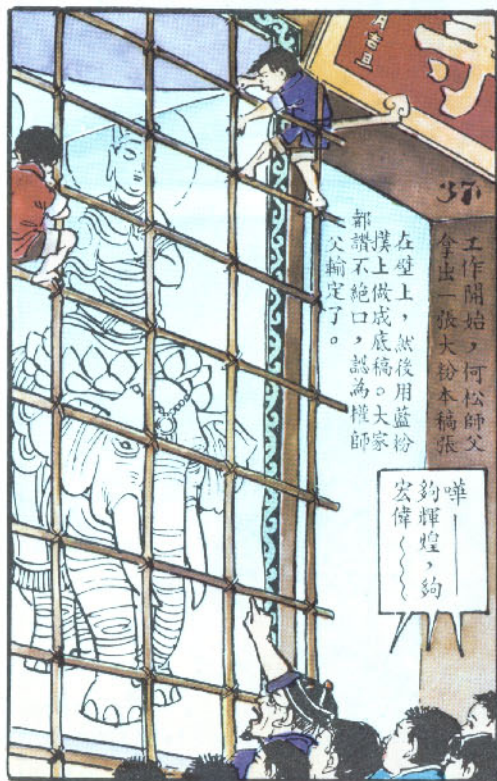 寺
月吉旦
37
工作開始，何松師父
拿出一張大粉本稿張
在壁上，然後用藍粉
撲上做成底稿。大家
都讚不絕口，認為權師
父輸定了。
嘩——
夠輝煌，夠
宏偉～～～